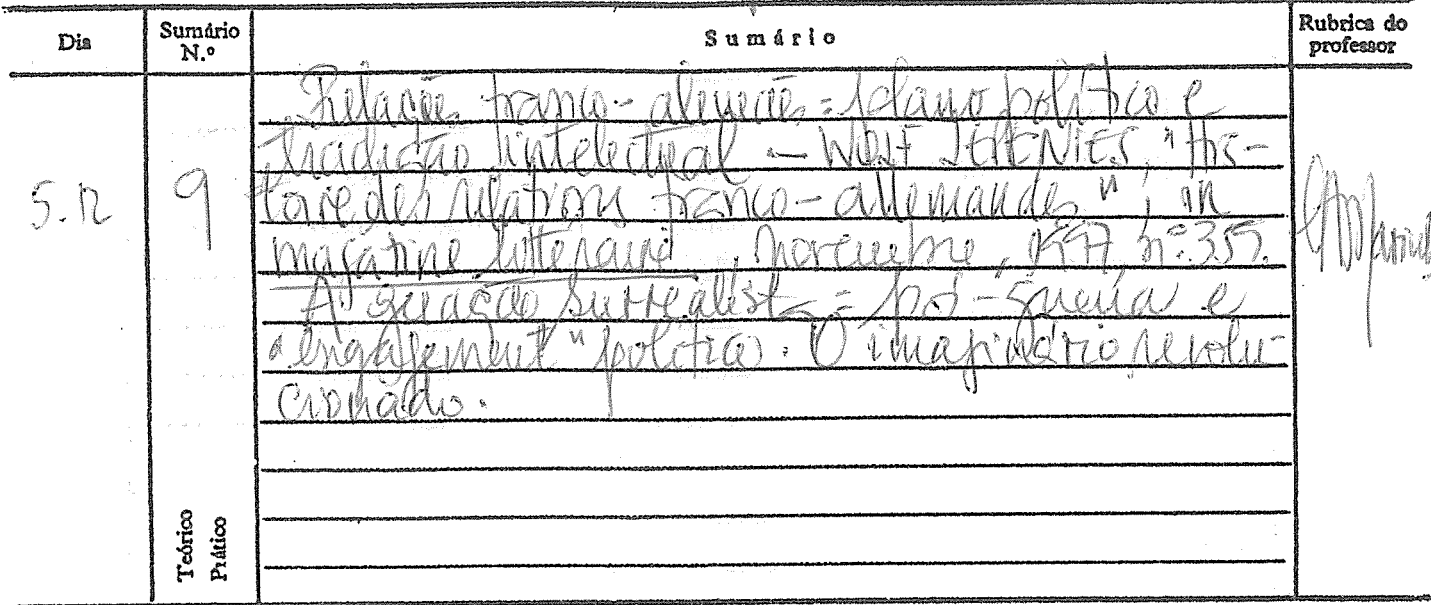 Dia Sumário N.º Sumário Rubrica do professor
5.12 9
Relações franco-alemãs = plano político e
tradição intelectual – WOLF LEPENIES, "His-
toire des relations franco-allemandes", in
magazine littéraire, novembre, 1997, nº 355.
A geração surrealista = pós-guerra e
"engagement" político. O imaginário revolu-
cionado.
Teórico
Prático